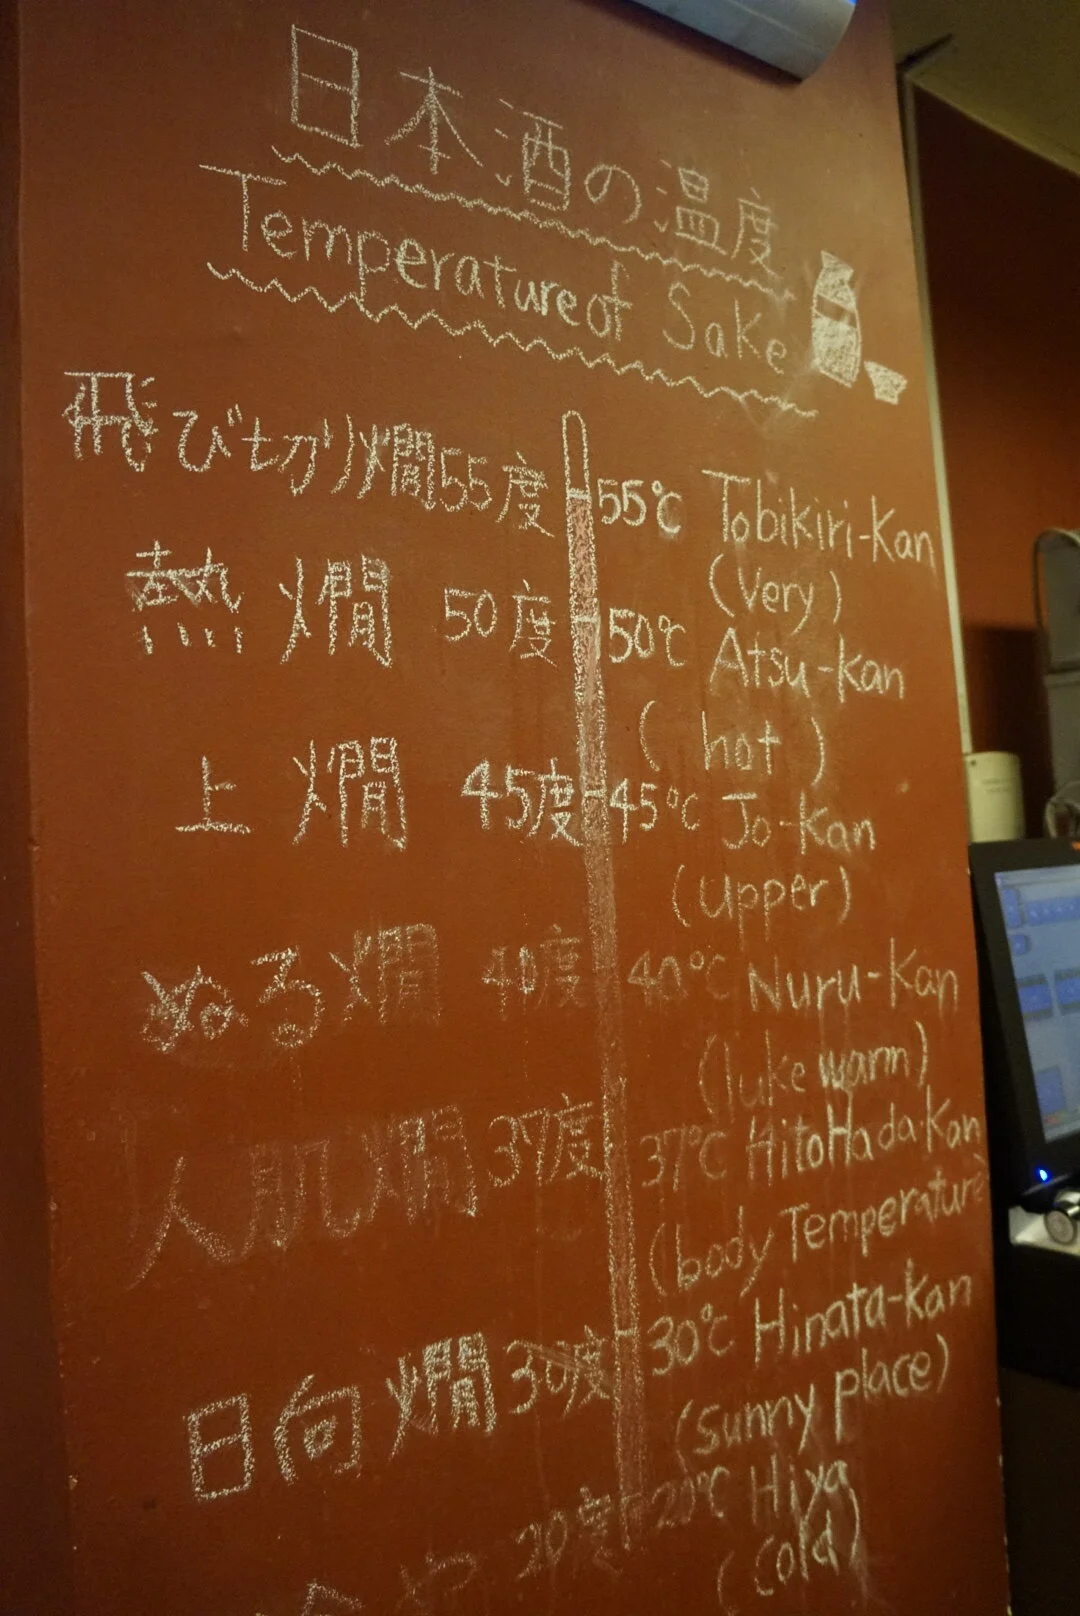 日本酒の温度
Temperature of Sake
飛び切り燗55度 55℃ Tobikiri-Kan
(Very)
熱燗 50度 50℃ Atsu-Kan
(hot)
上燗 45度 45℃ Jo-Kan
(upper)
ぬる燗 40度 40℃ Nuru-Kan
(luke warm)
人肌燗 37度 37℃ HitoHada-Kan
(body Temperature)
日向燗 30度 30℃ Hinata-Kan
(sunny place)
20度 20℃ Hiya
(cold)